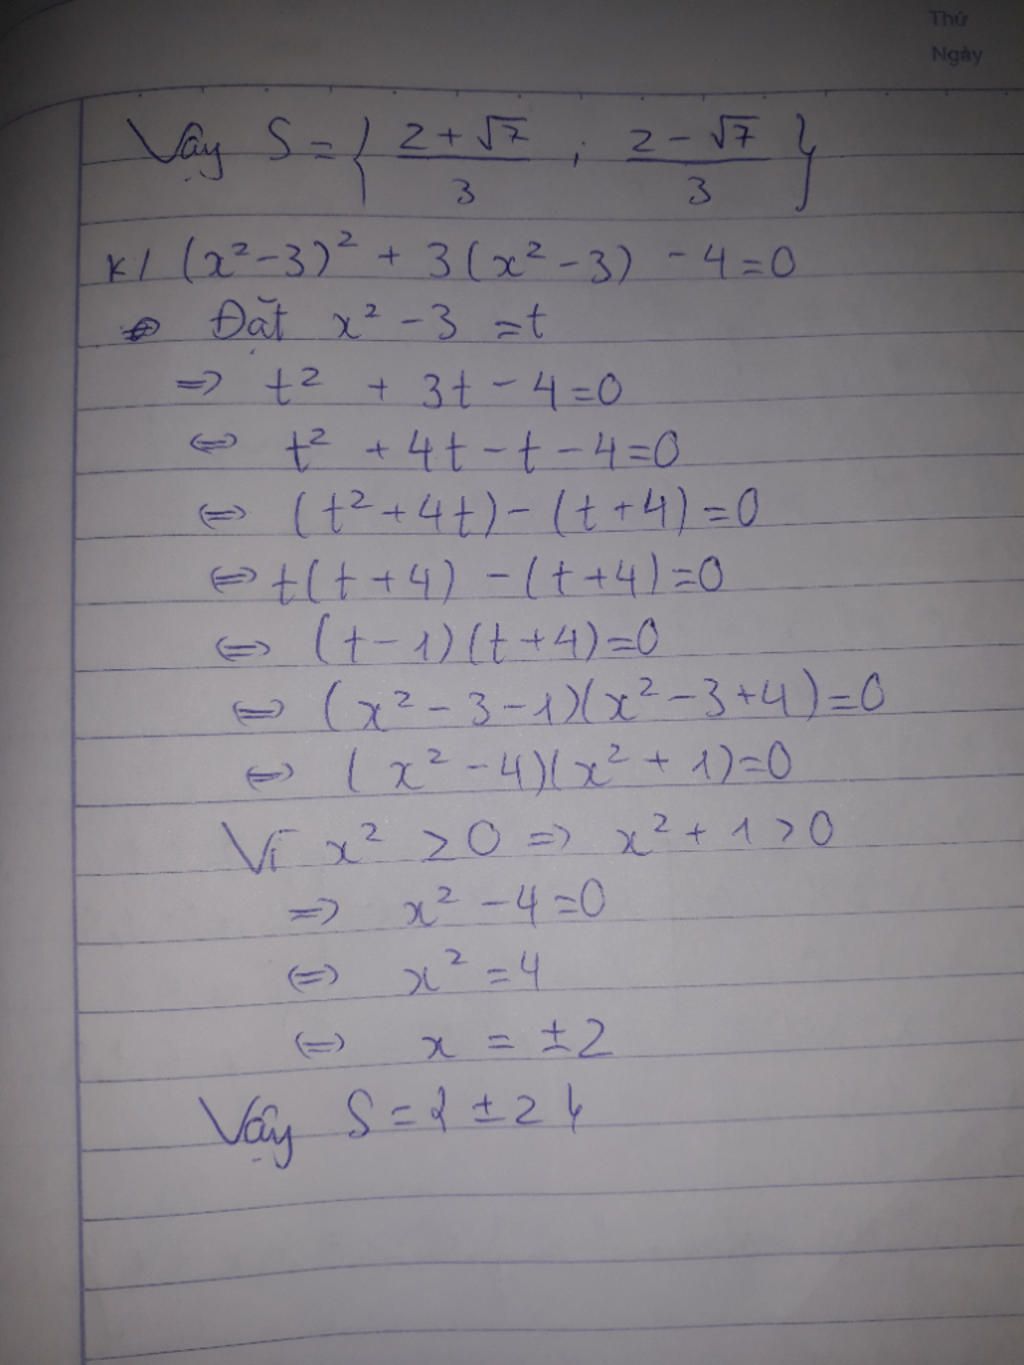 Thứ
Ngày
Vậy S = { (2 + √7)/3 ; (2 - √7)/3 }
k/ (x² - 3)² + 3(x² - 3) - 4 = 0
Đặt x² - 3 = t
=> t² + 3t - 4 = 0
<=> t² + 4t - t - 4 = 0
<=> (t² + 4t) - (t + 4) = 0
<=> t(t + 4) - (t + 4) = 0
<=> (t - 1)(t + 4) = 0
<=> (x² - 3 - 1)(x² - 3 + 4) = 0
<=> (x² - 4)(x² + 1) = 0
Vì x² ≥ 0 => x² + 1 > 0
=> x² - 4 = 0
<=> x² = 4
<=> x = ±2
Vậy S = { ±2 }